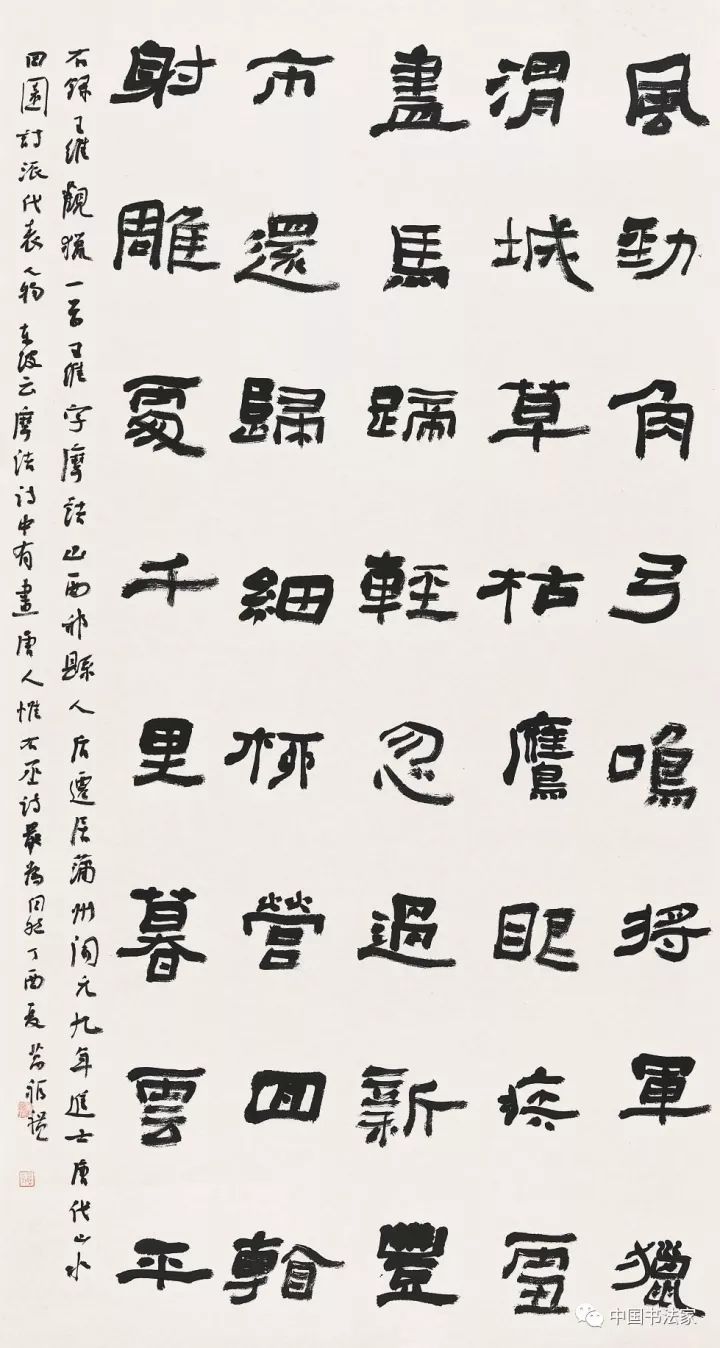 風勁角弓鳴將軍獵
渭城草枯鷹眼疾雪
盡馬蹄輕忽過新豐
市還歸細柳營回看
射雕處千里暮雲平
右錄王維觀獵一首王維字摩詰山西祁縣人后遷居蒲州開元九年進士唐代山水
田園詩派代表人物東坡云摩詰詩中有畫唐人惟右丞詩最為然丁酉夏
中国书法家